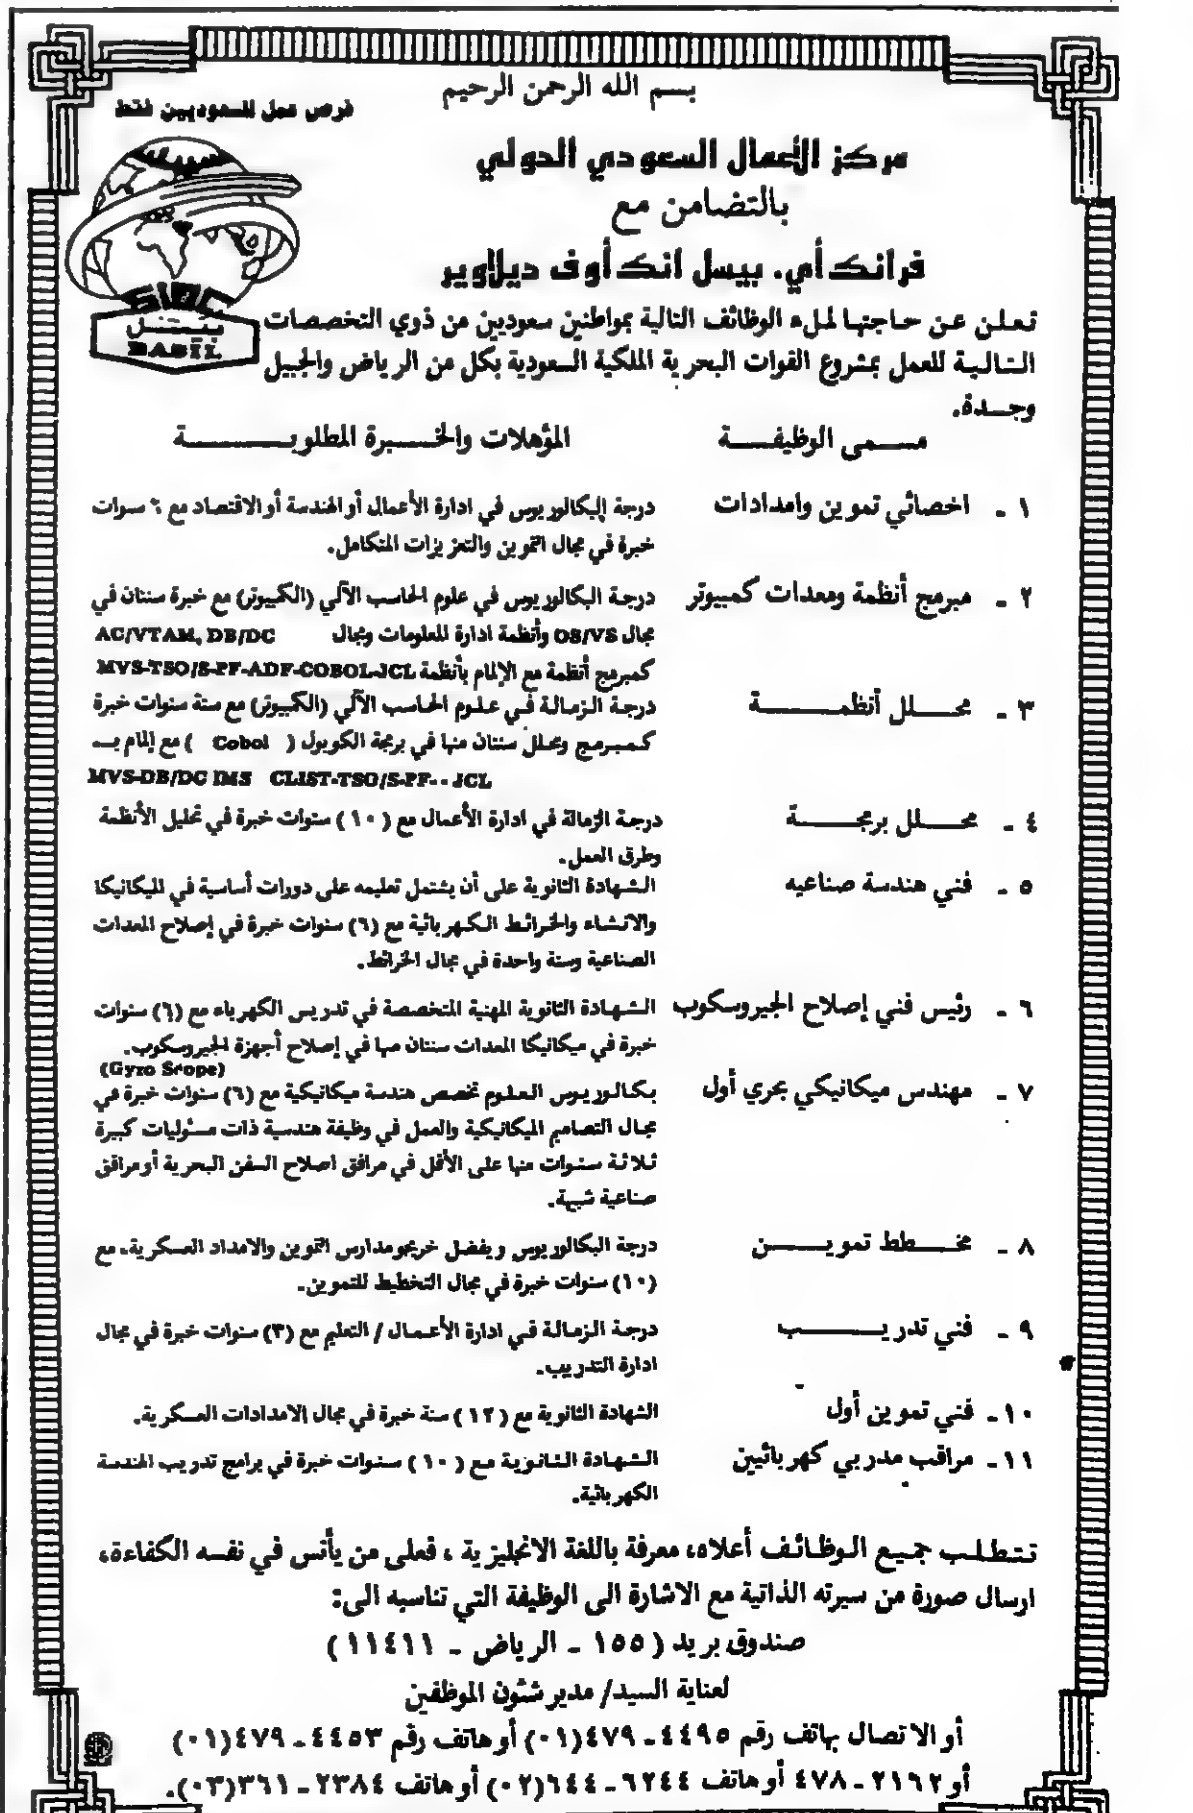 بسم الله الرحمن الرحيم
فرص عمل للسعوديين فقط
مركز الأعمال السعودي الدولي
بالتضامن مع
فرانك أي. بيسل انك أوف ديلاوير
SIBC
بيتل
BASIL
تعلن عن حاجتها لملء الوظائف التالية بمواطنين سعوديين من ذوي التخصصات
التالية للعمل بمشروع القوات البحرية الملكية السعودية بكل من الرياض والجبيل
وجدة.
مسمى الوظيفة المؤهلات والخبرة المطلوبة
١ - اخصائي تموين وامدادات درجة البكالوريوس في ادارة الأعمال أو الهندسة أو الاقتصاد مع ٦ سنوات
خبرة في مجال التموين والتعزيزات المتكامل.
٢ - مبرمج أنظمة ومعدات كمبيوتر درجة البكالوريوس في علوم الحاسب الآلي (الكمبيوتر) مع خبرة سنتان في
مجال OS/VS وأنظمة ادارة المعلومات ومجال AC/VTAM, DB/DC
كمبرمج أنظمة مع الإلمام بأنظمة MVS-TSO/S-PF-ADF-COBOL-JCL
٣ - محلل أنظمة درجة الزمالة في علوم الحاسب الآلي (الكمبيوتر) مع ستة سنوات خبرة
كمبرمج ومحلل سنتان منها في برمجة الكوبول ( Cobol ) مع إلمام بـ
MVS-DB/DC IMS CLIST-TSO/S-PF--JCL
٤ - محلل برمجة درجة الزمالة في ادارة الأعمال مع (١٠) سنوات خبرة في تحليل الأنظمة
وطرق العمل.
٥ - فني هندسة صناعيه الشهادة الثانوية على أن يشتمل تعليمه على دورات أساسية في الميكانيكا
والانشاء والخرائط الكهربائية مع (٦) سنوات خبرة في إصلاح المعدات
الصناعية وسنة واحدة في مجال الخرائط.
٦ - رئيس فني إصلاح الجيروسكوب الشهادة الثانوية المهنية المتخصصة في تدريس الكهرباء مع (٦) سنوات
خبرة في ميكانيكا المعدات سنتان منها في إصلاح أجهزة الجيروسكوب.
(Gyro Scope)
٧ - مهندس ميكانيكي بحري أول بكالوريوس العلوم تخصص هندسة ميكانيكية مع (٦) سنوات خبرة في
مجال التصاميم الميكانيكية والعمل في وظيفة هندسية ذات مسئوليات كبيرة
ثلاثة سنوات منها على الأقل في مرافق اصلاح السفن البحرية أو مرافق
صناعية شبيهة.
٨ - مخطط تموين درجة البكالوريوس ويفضل خريجو مدارس التموين والامداد العسكرية. مع
(١٠) سنوات خبرة في مجال التخطيط للتموين.
٩ - فني تدريب درجة الزمالة في ادارة الأعمال / التعليم مع (٣) سنوات خبرة في مجال
ادارة التدريب.
١٠ - فني تموين أول الشهادة الثانوية مع (١٢) سنة خبرة في مجال الامدادات العسكرية.
١١ - مراقب مدربي كهربائيين الشهادة الثانوية مع (١٠) سنوات خبرة في برامج تدريب الهندسة
الكهربائية.
تتطلب جميع الوظائف أعلاه، معرفة باللغة الانجليزية، فعلى من يأنس في نفسه الكفاءة،
ارسال صورة من سيرته الذاتية مع الاشارة الى الوظيفة التي تناسبه الى:
صندوق بريد (١٥٥ - الرياض - ١١٤١١)
لعناية السيد/ مدير شئون الموظفين
أو الاتصال بهاتف رقم ٤٤٩٥ - ٤٧٩(٠١) أو هاتف رقم ٤٤٥٣ - ٤٧٩(٠١)
أو ٢١٦٢ - ٤٧٨ أو هاتف ٦٢٤٤ - ٦٤٤(٠٢) أو هاتف ٢٣٨٤ - ٣٦١(٠٣).